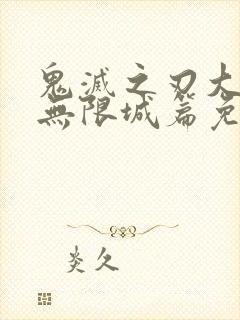 鬼滅之刃大
無限城篇免
炎久